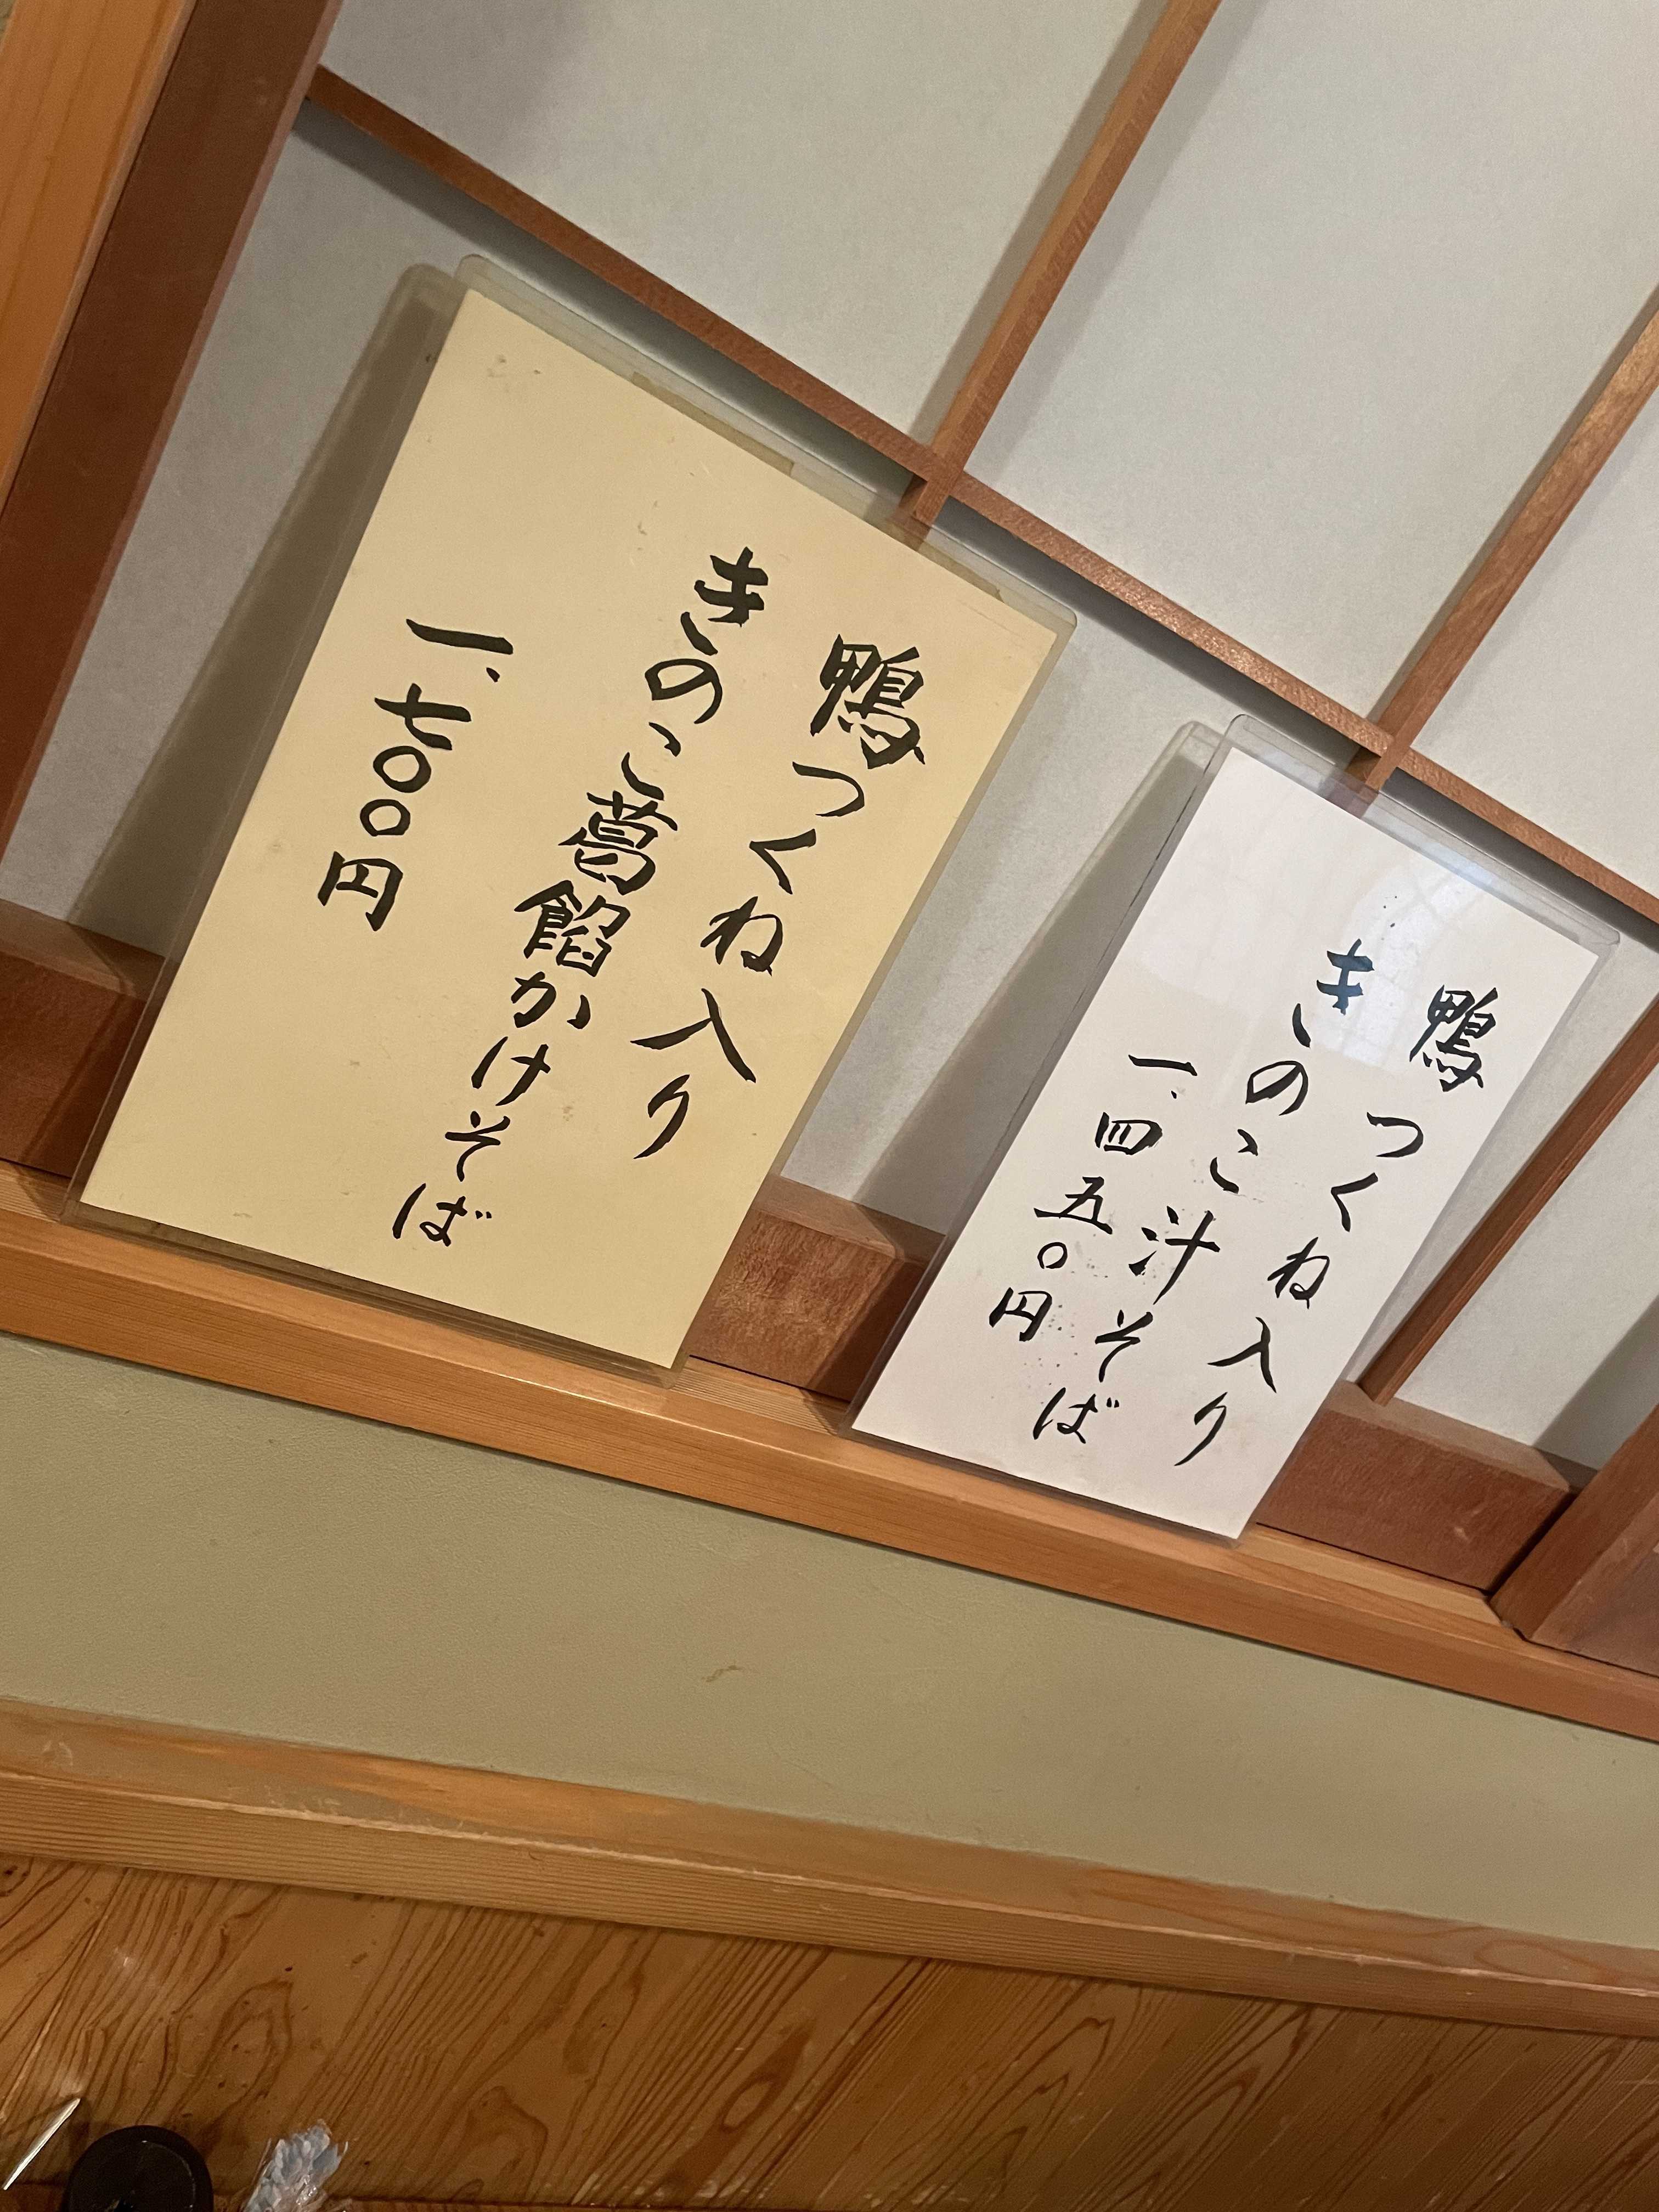 鴨つくね入り
きのこ葛餡かけそば
一、七〇〇円
鴨つくね入り
きのこ汁そば
一、四五〇円